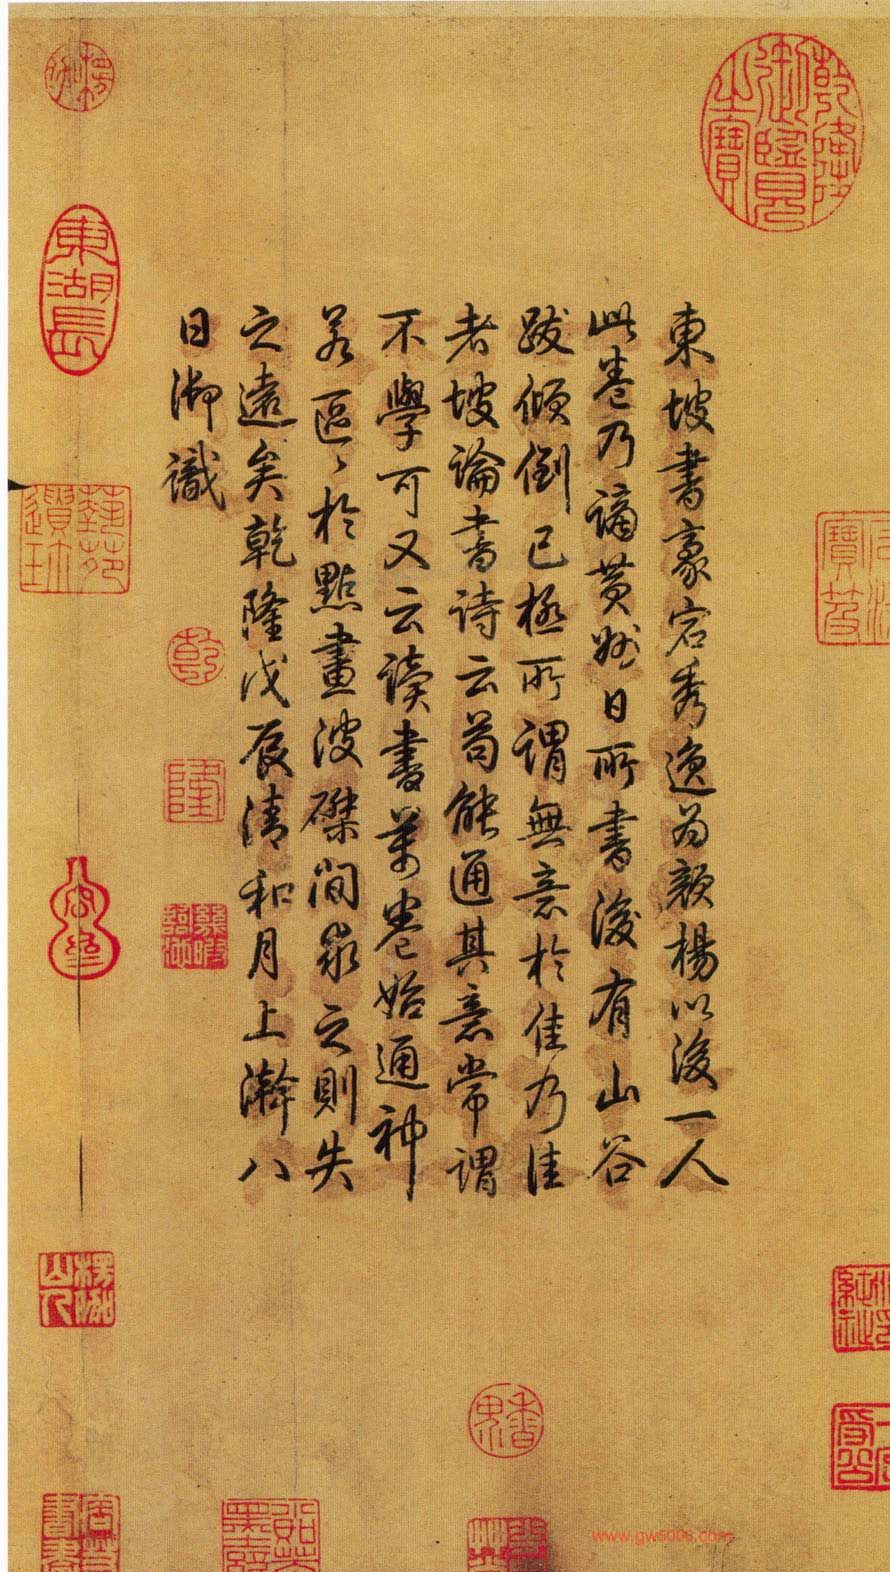 乾隆御覽之寶
東坡書豪宕秀逸為顏楊以後一人
此卷乃謫黃州日所書後有山谷
跋傾倒已極所謂無意於佳乃佳
者坡論書詩云苟能通其意常謂
不學可又云讀書萬卷始通神
若區〻於點畫波磔間求之則失
之遠矣乾隆戊辰清和月上澣八
日御識
乾
隆
東湖長
藝苑遺珍
楞伽山人